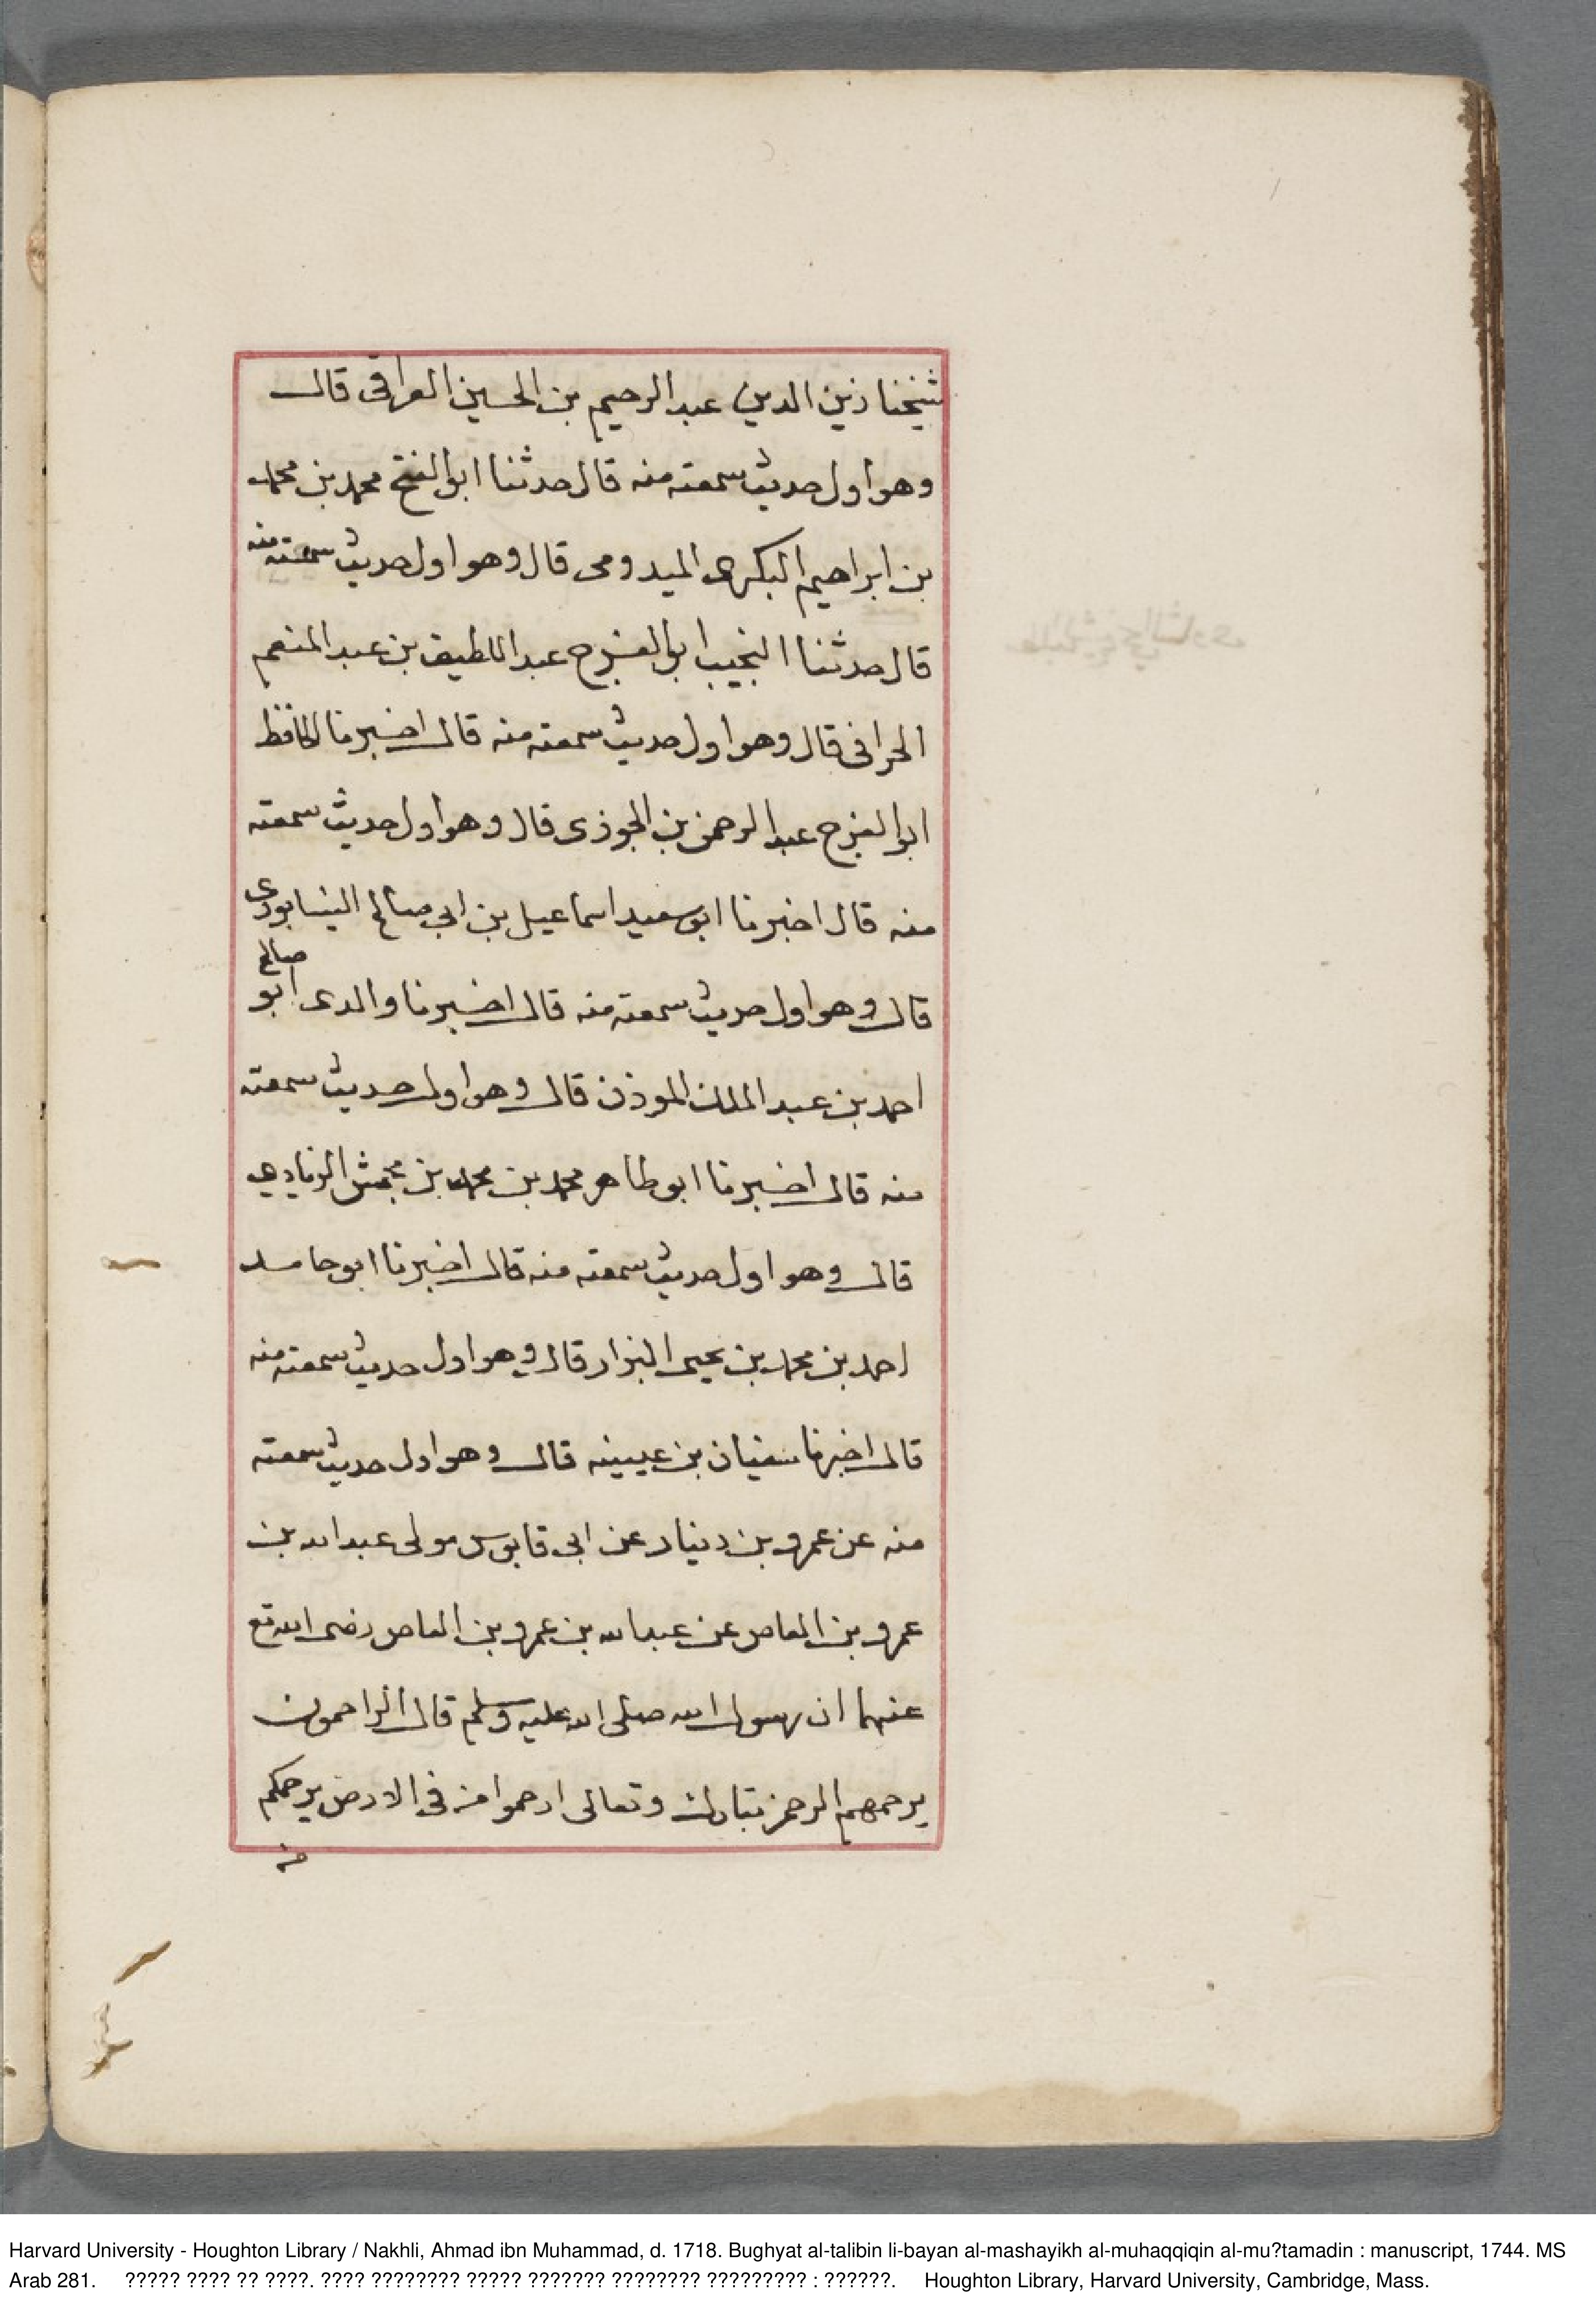 شيخنا زين الدين عبد الرحيم بن الحسين العراقى قال
وهو اول حديث سمعته منه قال حدثنا ابو الفتح محمد بن محمد
بن ابراهيم البكرى الميدومى قال وهو اول حديث سمعته منه
قال حدثنا النجيب ابو الفرج عبد اللطيف بن عبد المنعم
الحرانى قال وهو اول حديث سمعته منه قال اخبرنا الحافظ
ابو الفرج عبد الرحمن بن الجوزى قال وهو اول حديث سمعته
منه قال اخبرنا ابو سعيد اسماعيل بن ابى صالح النيسابورى
قال وهو اول حديث سمعته منه قال اخبرنا والدى ابو صالح
احمد بن عبد الملك الموذن قال وهو اول حديث سمعته
منه قال اخبرنا ابو طاهر محمد بن محمد بن محمش الزيادي
قال وهو اول حديث سمعته منه قال اخبرنا ابو حامد
احمد بن محمد بن يحيى البزار قال وهو اول حديث سمعته منه
قال اخبرنا سفيان بن عيينه قال وهو اول حديث سمعته
منه عن عمرو بن دينار عن ابى قابوس مولى عبد الله بن
عمرو بن العاص عن عبد الله بن عمرو بن العاص رضى الله تع
عنهما ان رسول الله صلى الله عليه وسلم قال الراحمون
يرحمهم الرحمن تبارك وتعالى ارحموا من فى الارض يرحمكم
من
Harvard University - Houghton Library / Nakhli, Ahmad ibn Muhammad, d. 1718. Bughyat al-talibin li-bayan al-mashayikh al-muhaqqiqin al-mu?tamadin : manuscript, 1744. MS
Arab 281. ????? ???? ?? ????. ???? ???????? ????? ??????? ???????? ????????? : ??????. Houghton Library, Harvard University, Cambridge, Mass.